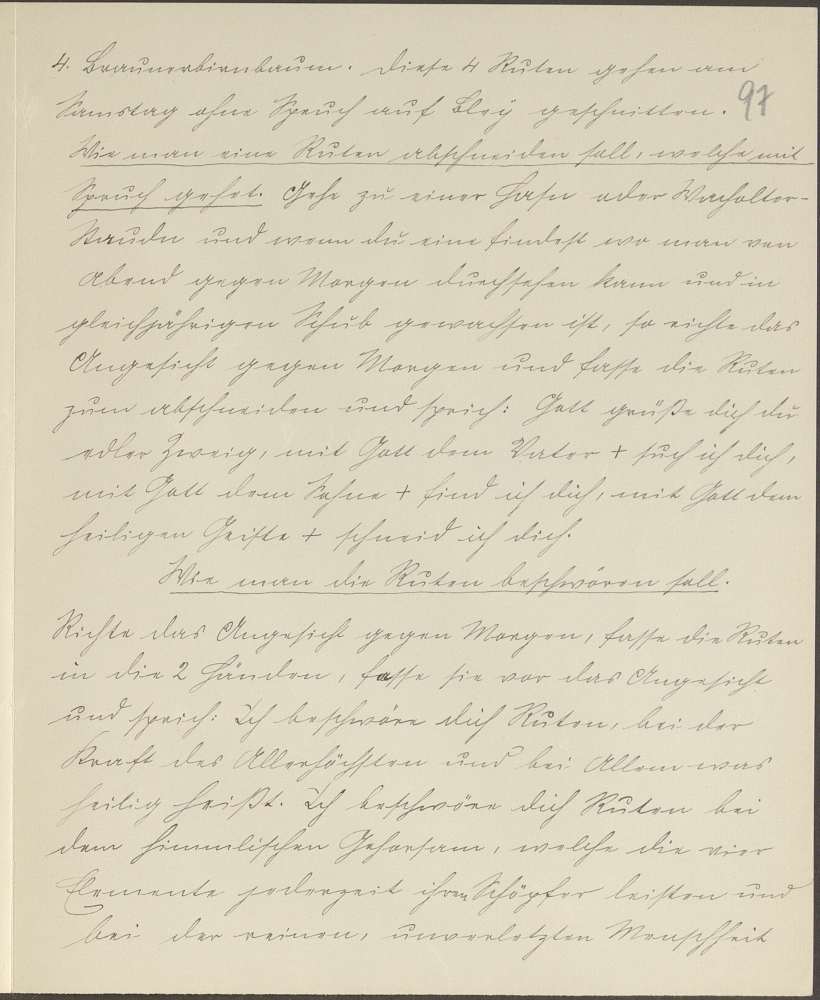 4. Braunerbirnbaum. Diese 4 Ruten gehen am
Samstag ohne Spruch auf Bley geschnitten.
97
Wie man eine Ruten abschneiden soll, welche mit
Spruch gehet. Gehe zu einer Hasn oder Wacholter-
Staude und wenn du eine findest wo man von
Abend gegen Morgen durchsehen kann und in
gleichjährigen Schub gewachsen ist, so richte das
Angesicht gegen Morgen und fasse die Ruten
zum abschneiden und sprich: Gott grüße dich du
edler Zweig, mit Gott dem Vater + such ich dich,
mit Gott dem Sohne + find ich dich, mit Gott dem
heiligen Geiste + schneid ich dich.
Wie man die Ruten beschwören soll.
Richte das Angesicht gegen Morgen, fasse die Ruten
in die 2 Händen, fasse sie vor das Angesicht
und sprich: Ich beschwöre dich Ruten, bei der
Kraft des Allerhöchsten und bei Allem was
heilig heißt. Ich beschwöre dich Ruten bei
dem himmlischen Gehorsam, welche die vier
Elemente jederzeit ihren Schöpfer leisten und
bei der reinen, unverletzten Menschheit